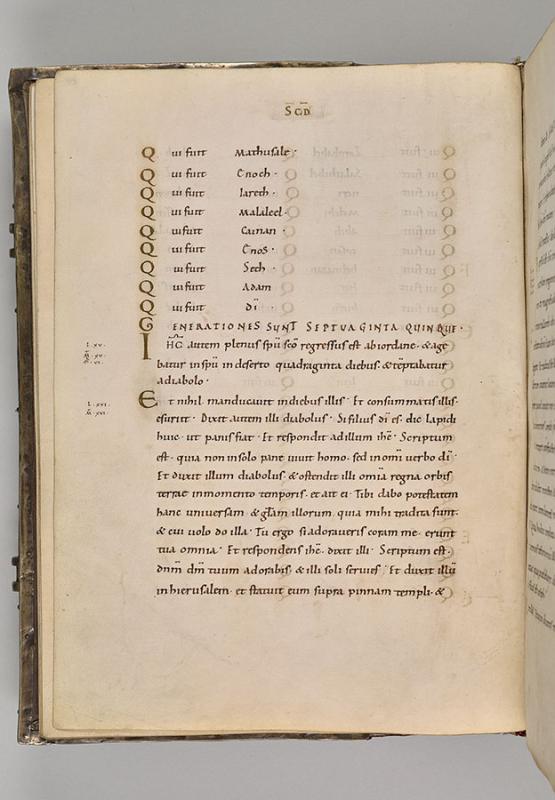 SCD
Qui fuit Mathusale ·
Qui fuit Enoch ·
Qui fuit Iareth ·
Qui fuit Malaleel ·
Qui fuit Cainan ·
Qui fuit Enos ·
Qui fuit Seth ·
Qui fuit Adam
Qui fuit dī ·
GENERATIONES SUNT SEPTUAGINTA QUINQUE ·
IHC autem plenus spū scō regressus est ab iordane · & age
batur in spū in deserto quadraginta diebus · & tēptabatur
a diabolo ·
Et nihil manducavit in diebus illis · Et consummatis illis ·
esuriit · Dixit autem illi diabolus · Si filius dī es · dic lapidi
huic · ut panis fiat · Et respondit ad illum ihc · Scriptum
est · quia non in solo pane vivit homo · sed in omi verbo dī ·
Et duxit illum diabolus · & ostendit illi omia regna orbis
terrae in momento temporis · et ait ei · Tibi dabo potestatem
hanc universam · & glam illorum · quia mihi tradita sunt ·
& cui volo do illa · Tu ergo si adoraveris coram me · erunt
tua omnia · Et respondens ihc · dixit illi · Scriptum est ·
dnm dm tuum adorabis · & illi soli servies · Et duxit illū
in hierusalem · et statuit eum supra pinnam templi · &